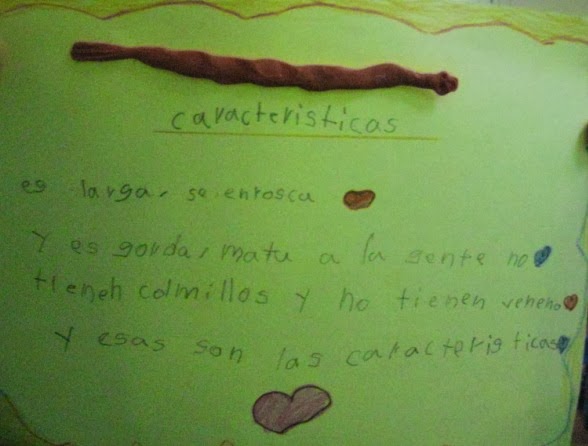 caracteristicas
es larga, se enrosca
Y es gorda, mata a la gente no
tieneh colmillos y no tienen veneno
Y esas son las caracteristicas